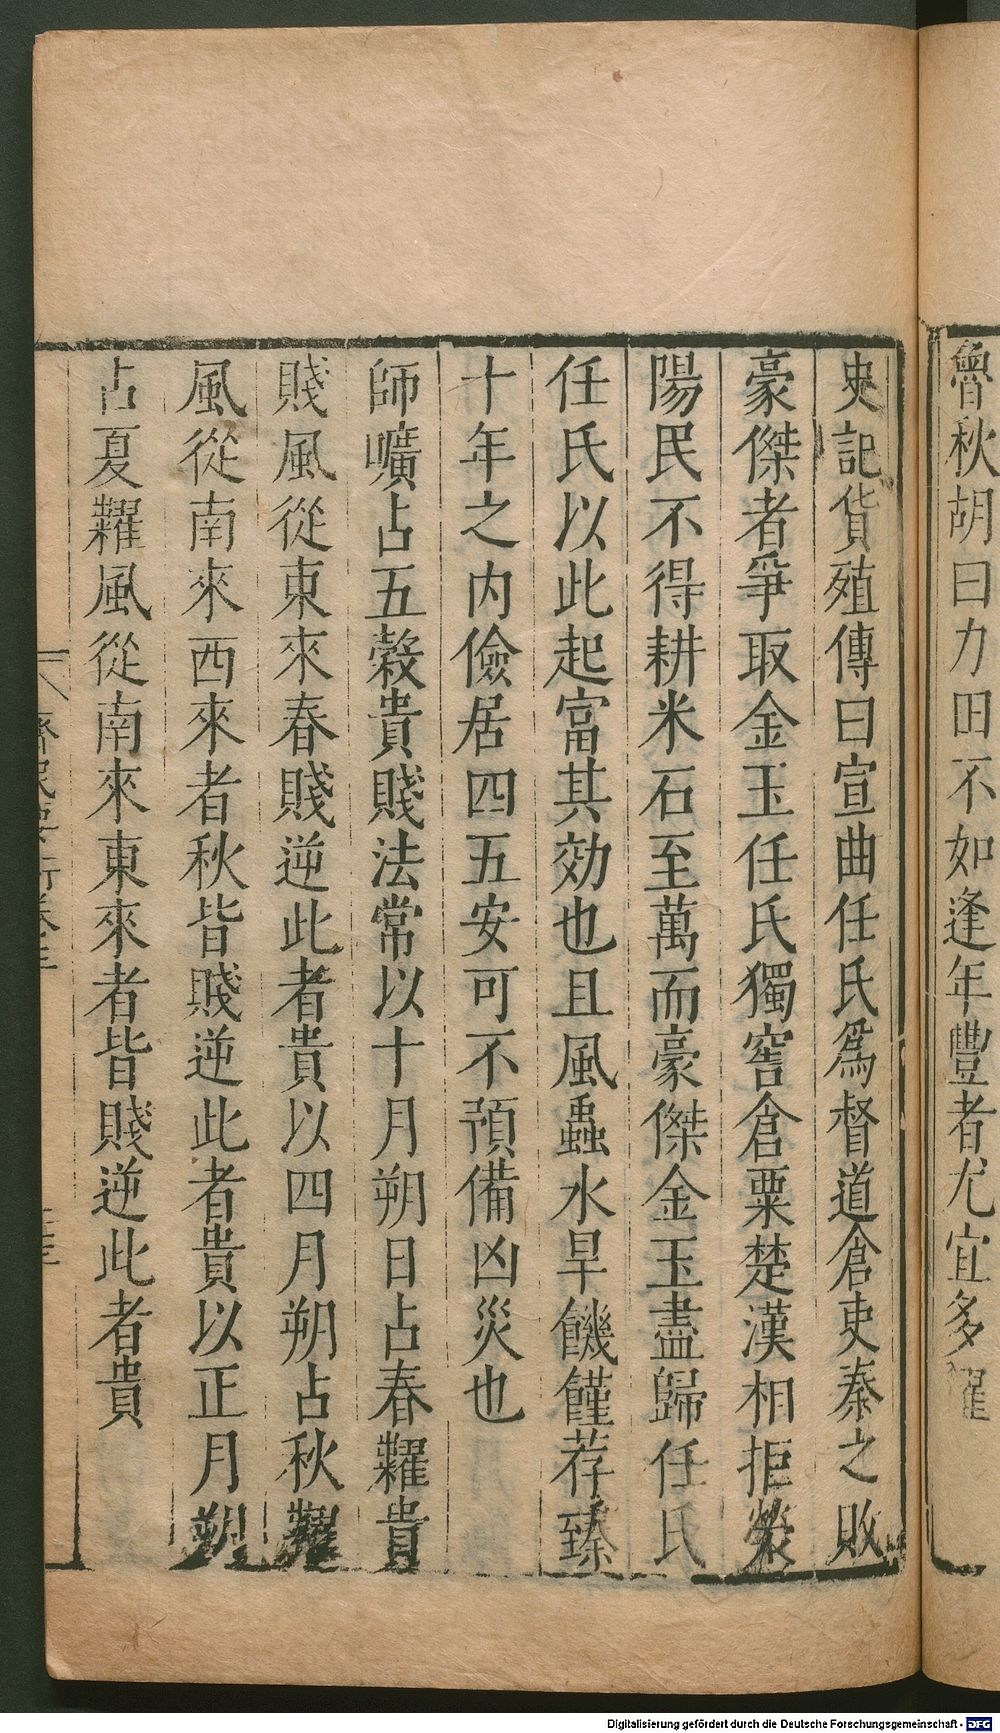 魯秋胡曰力田不如逢年豐者尤宜多糴
史記貨殖傳曰宣曲任氏爲督道倉吏秦之敗
豪傑者爭取金玉任氏獨窖倉粟楚漢相拒滎
陽民不得耕米石至萬而豪傑金玉盡歸任氏
任氏以此起富其効也且風蟲水旱饑饉荐臻
十年之内儉居四五安可不預備凶災也
師曠占五穀貴賤法常以十月朔日占春糶貴
賤風從東來春賤逆此者貴以四月朔占秋糶
風從南來西來者秋皆賤逆此者貴以正月朔
占夏糶風從南來東來者皆賤逆此者貴
齊民要術卷三
Digitalisierung gefördert durch die Deutsche Forschungsgemeinschaft - DFG